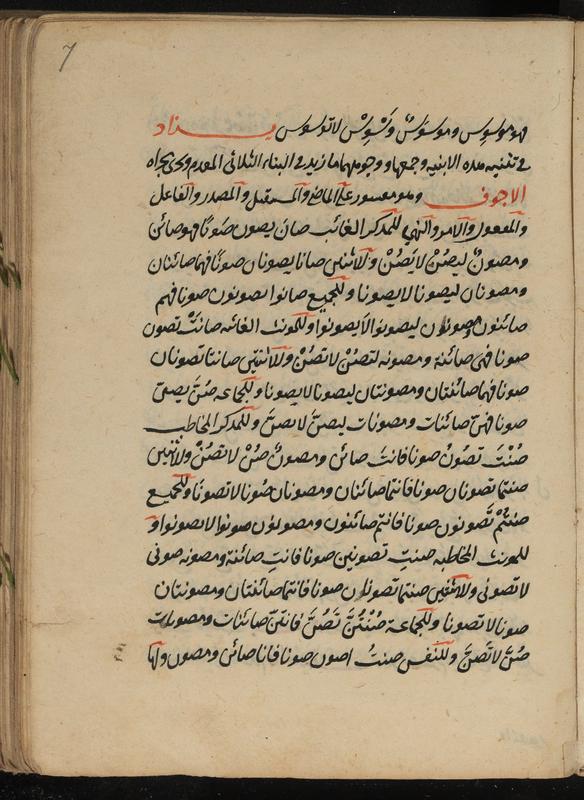 7
فهو موسوس وموسوس وَسْوِسْ لا توسوس يـــزاد
فى تثنيه هذه الابنيه وجمعها ووجوهها ما زيد فى البناء الثلاثى المعدم وحكى مجراه
الاجوف وهو مقسور على الماضى والمستقبل والمصدر والفاعل
والمفعول والامر والنهى للمذكر الغائب صان يصون صونا فهو صائن
ومصون ليصُنْ لا يَصُنْ وللاثنين صانا يصونان صونا فهما صائنان
ومصونان ليصونا لا يصونا وللجميع صانوا يصونون صونا فهم
صائنون ومصونون ليصونوا لا يصونوا وللمونث الغائبه صانتْ تصون
صونا فهى صائنة ومصونه لتصُنْ لا تصُنْ وللاثنتين صانتا تصونان
صونا فهما صائنتان ومصونتان ليصونا لا يصونا وللجماعه صُنَّ يصنّ
صونا فهنّ صائنات ومصونات ليصنَّ لا يصنَّ وللمذكر المخاطب
صُنْتَ تصُونُ صونا فانتَ صائن ومصونٌ صُنْ لا تصُنْ وللاثنين
صنتما تصونان صونا فانتما صائنان ومصونان صُونا لا تصونا وللجميع
صُنتُمْ تَصونون صونا فانتم صائنون ومصونون صونوا لا تصونوا و
للمونث المخاطبه صنتِ تصونين صونا فانتِ صائنة ومصونه صونى
لا تصونى وللاثنتين صنتما تصونان صونا فانتما صائنتان ومصونتان
صونا لا تصونا وللجماعة صُنْتُنَّ تَصُنَّ فانتنّ صائنات ومصونات
صُنَّ لا تَصُنَّ وللنفس صنتُ اصون صونا فانا صائن ومصون ولها